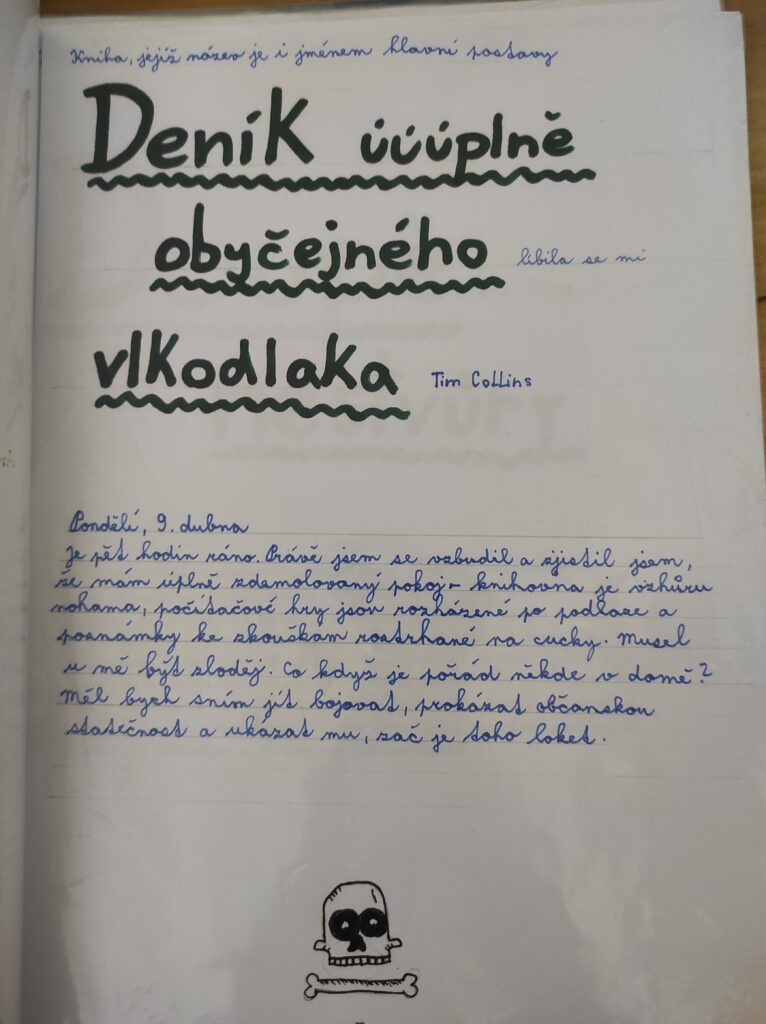 Kniha, jejíž název je i jménem hlavní postavy
Deník úúúplně
obyčejného
líbila se mi
vlkodlaka
Tim Collins
Pondělí, 9. dubna
Je pět hodin ráno. Právě jsem se vzbudil a zjistil jsem,
že mám úplně zdemolovaný pokoj - knihovna je vzhůru
nohama, počítačové hry jsou rozházené po podlaze a
poznámky ke zkouškam roztrhané na cucky. Musel
u mě být zloděj. Co když je pořád někde v domě?
Měl bych sním jít bojovat, prokázat občanskou
statečnost a ukázat mu, zač je toho loket.